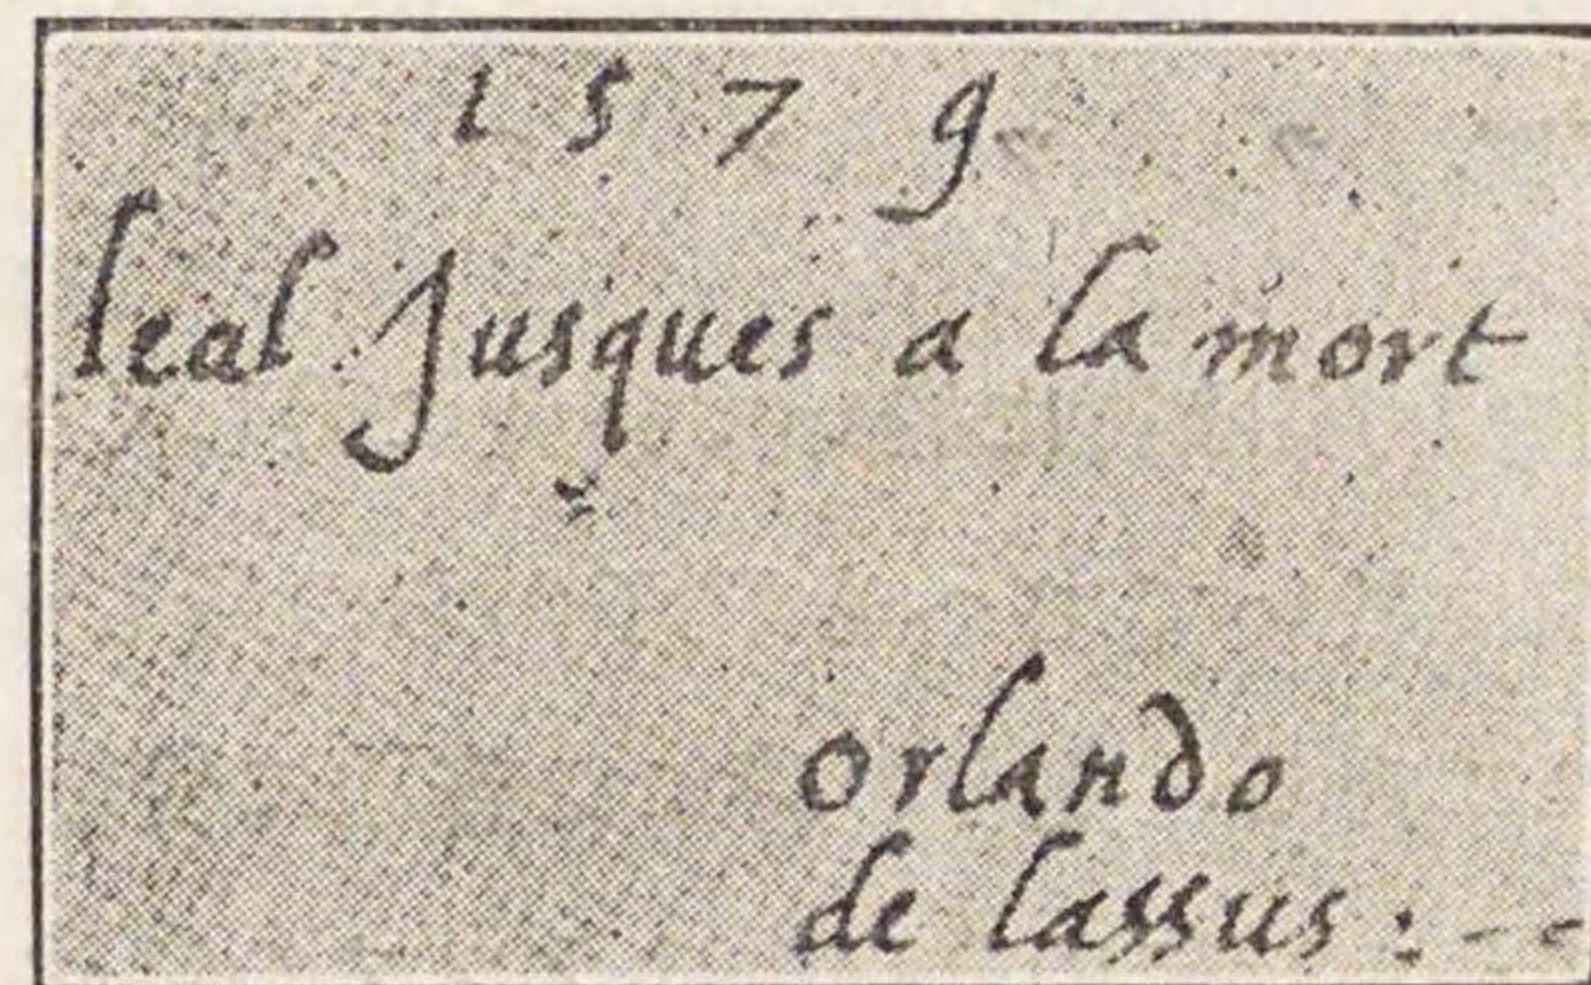 1579
leal Jusques a la mort
orlando
de lassus : - -